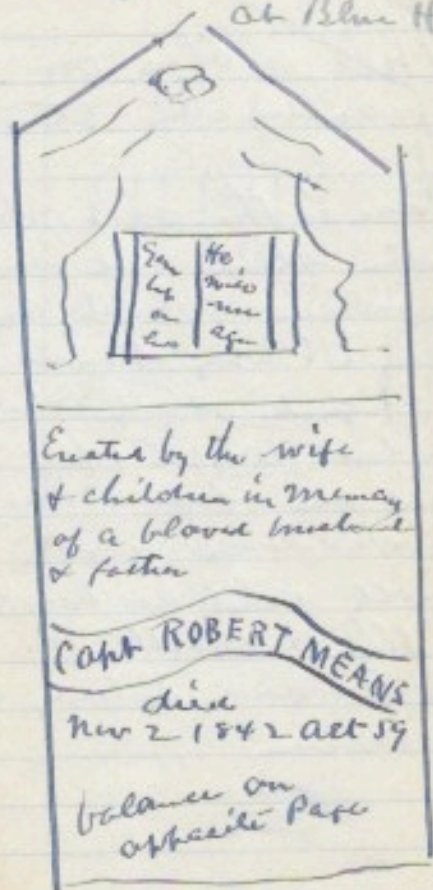 at Blue H
He
will
rise
Erected by the wife
& children in memory
of a bloved husband
& father
Capt ROBERT MEANS
died
Nov 2 1842 aet 59
balance on
opposite Page